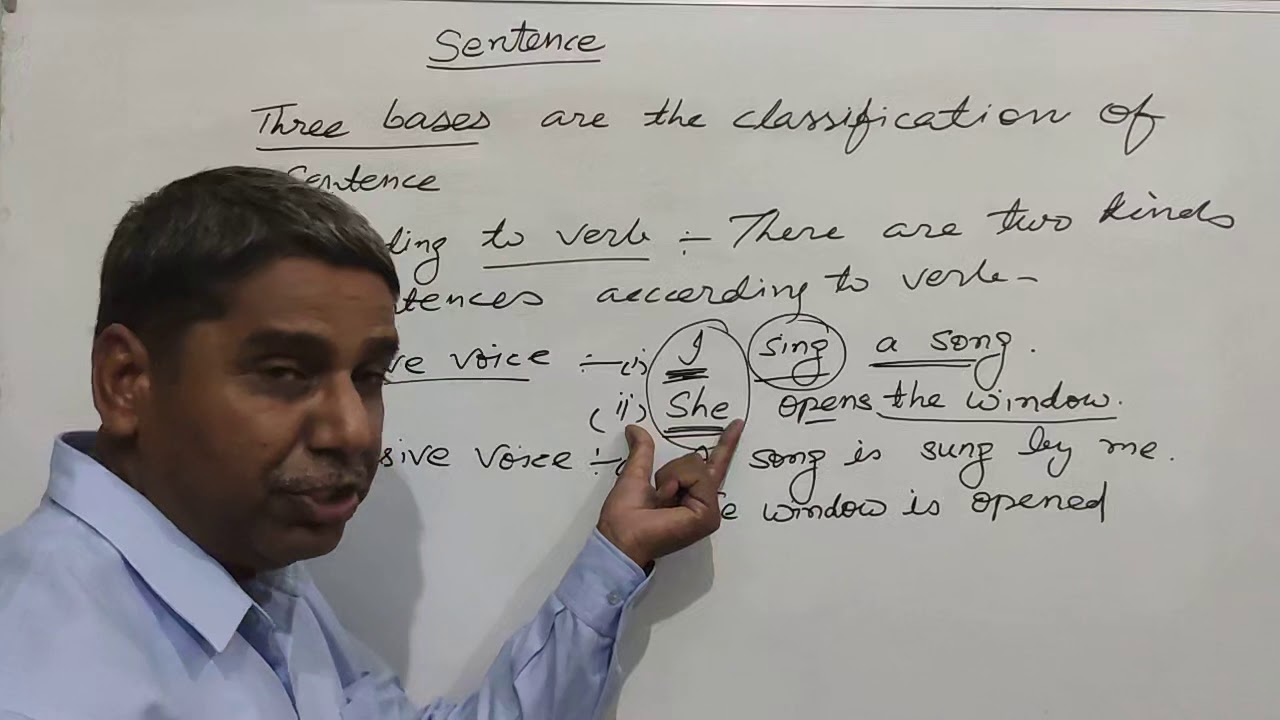 Sentence
Three bases are the classification of
Sentence
ding to verb :- There are two kinds
tences according to verb -
ve voice :- (i) I sing a song.
(ii) She opens the window.
sive voice :- song is sung by me.
e window is opened